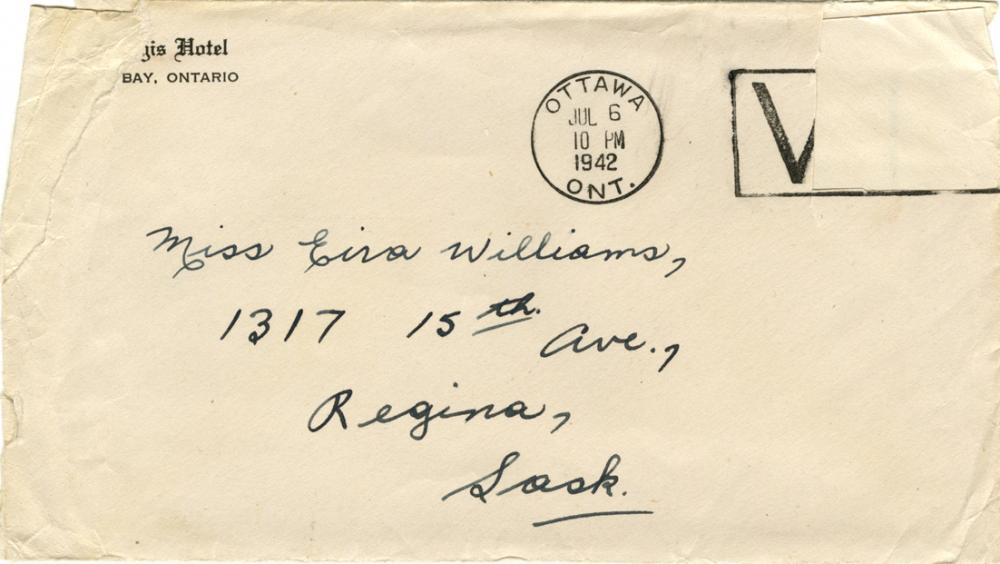 Hotel
BAY, ONTARIO
OTTAWA
JUL 6
10 PM
1942
ONT.
V
Miss Eira Williams,
1317 15th. Ave.,
Regina,
Sask.